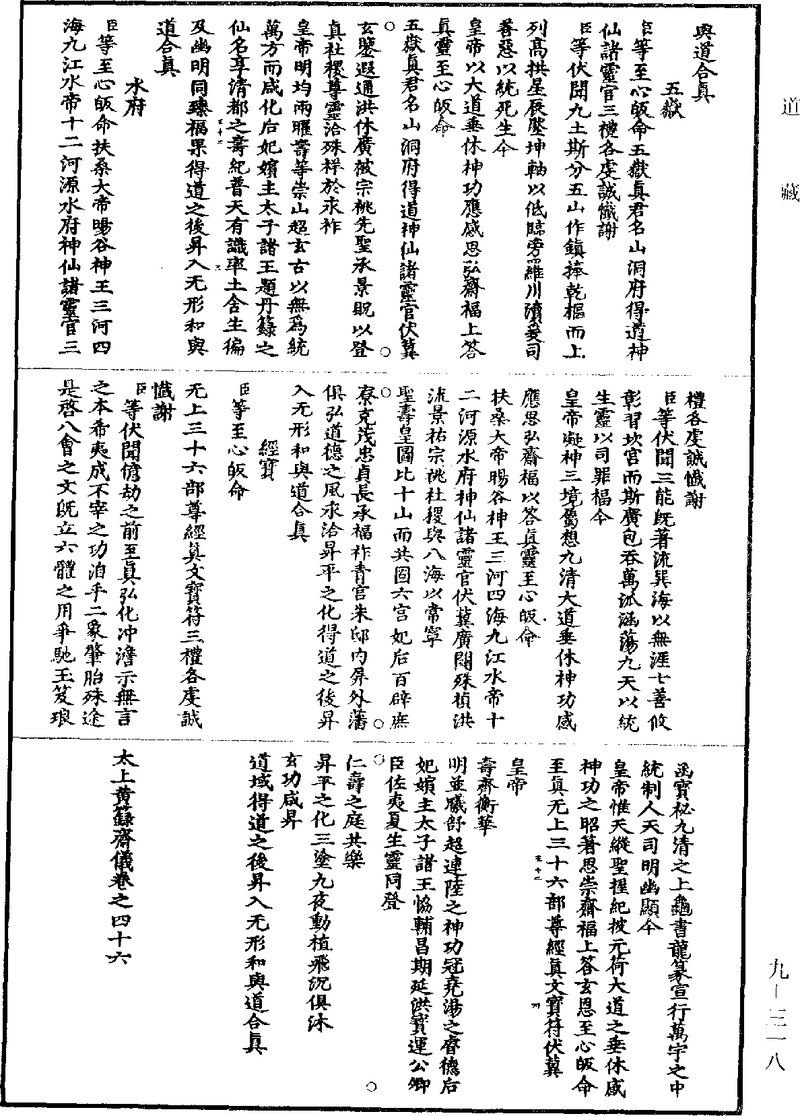 道藏
與道合真
五嶽
臣等至心皈命五嶽真君名山洞府得道神
仙諸靈官三禮各虔誠懺謝
臣等伏聞九土斯分五山作鎮捧乾樞而上
列高拱星辰壓坤軸以低臨旁羅川瀆爰司
善惡以統死生今
皇帝以大道垂休神功應感思弘齋福上答
真靈至心皈命
五嶽真君名山洞府得道神仙諸靈官伏冀
玄鑒遐通洪休廣被宗祧先聖承景貺以登
真社稷尊靈洽殊祥於永祚
皇帝明均兩曜壽等崇山超玄古以無為統
萬方而咸化后妃嬪主太子諸王題丹籙之
仙名享清都之壽紀普天有識率土含生徧
及幽明同臻福果得道之後昇入无形和與
道合真
水府
臣等至心皈命扶桑大帝暘谷神王三河四
海九江水帝十二河源水府神仙諸靈官三
禮各虔誠懺謝
臣等伏聞三能既著流巽海以無涯七善攸
彰習坎宮而斯廣包吞萬派涵蕩九天以統
生靈以司罪福今
皇帝凝神三境屬想九清大道垂休神功感
應思弘齋福以答真靈至心皈命
扶桑大帝暘谷神王三河四海九江水帝十
二河源水府神仙諸靈官伏冀廣開殊禎洪
流景祐宗祧社稷與八海以常寧
聖壽皇圖比十山而共固六宮妃后百辟庶
寮克茂忠貞長承福祚青宮朱邸內屏外藩
俱弘道德之風永洽昇平之化得道之後昇
入无形和與道合真
經寶
臣等至心皈命
无上三十六部尊經真文寶符三禮各虔誠
懺謝
臣等伏聞億劫之前至真弘化冲澹示無言
之本希夷成不宰之功洎乎二象肇胎殊途
是啓八會之文既立六體之用爭馳玉笈琅
函寶秘九清之上龜書龍篆宣行萬宇之中
統制人天司明幽顯今
皇帝惟天縱聖握紀披元荷大道之垂休感
神功之昭著思崇齋福上答玄恩至心皈命
至真无上三十六部尊經真文寶符伏冀
皇帝
壽齊衡華
明並曦舒超連陸之神功冠堯湯之睿德后
妃嬪主太子諸王恊輔昌期延洪寶運公卿
臣佐夷夏生靈同登
仁壽之庭共樂
昇平之化三塗九夜動植飛沉俱沐
玄功咸昇
道域得道之後昇入无形和與道合真
太上黃籙齋儀卷之四十六
九—三一八